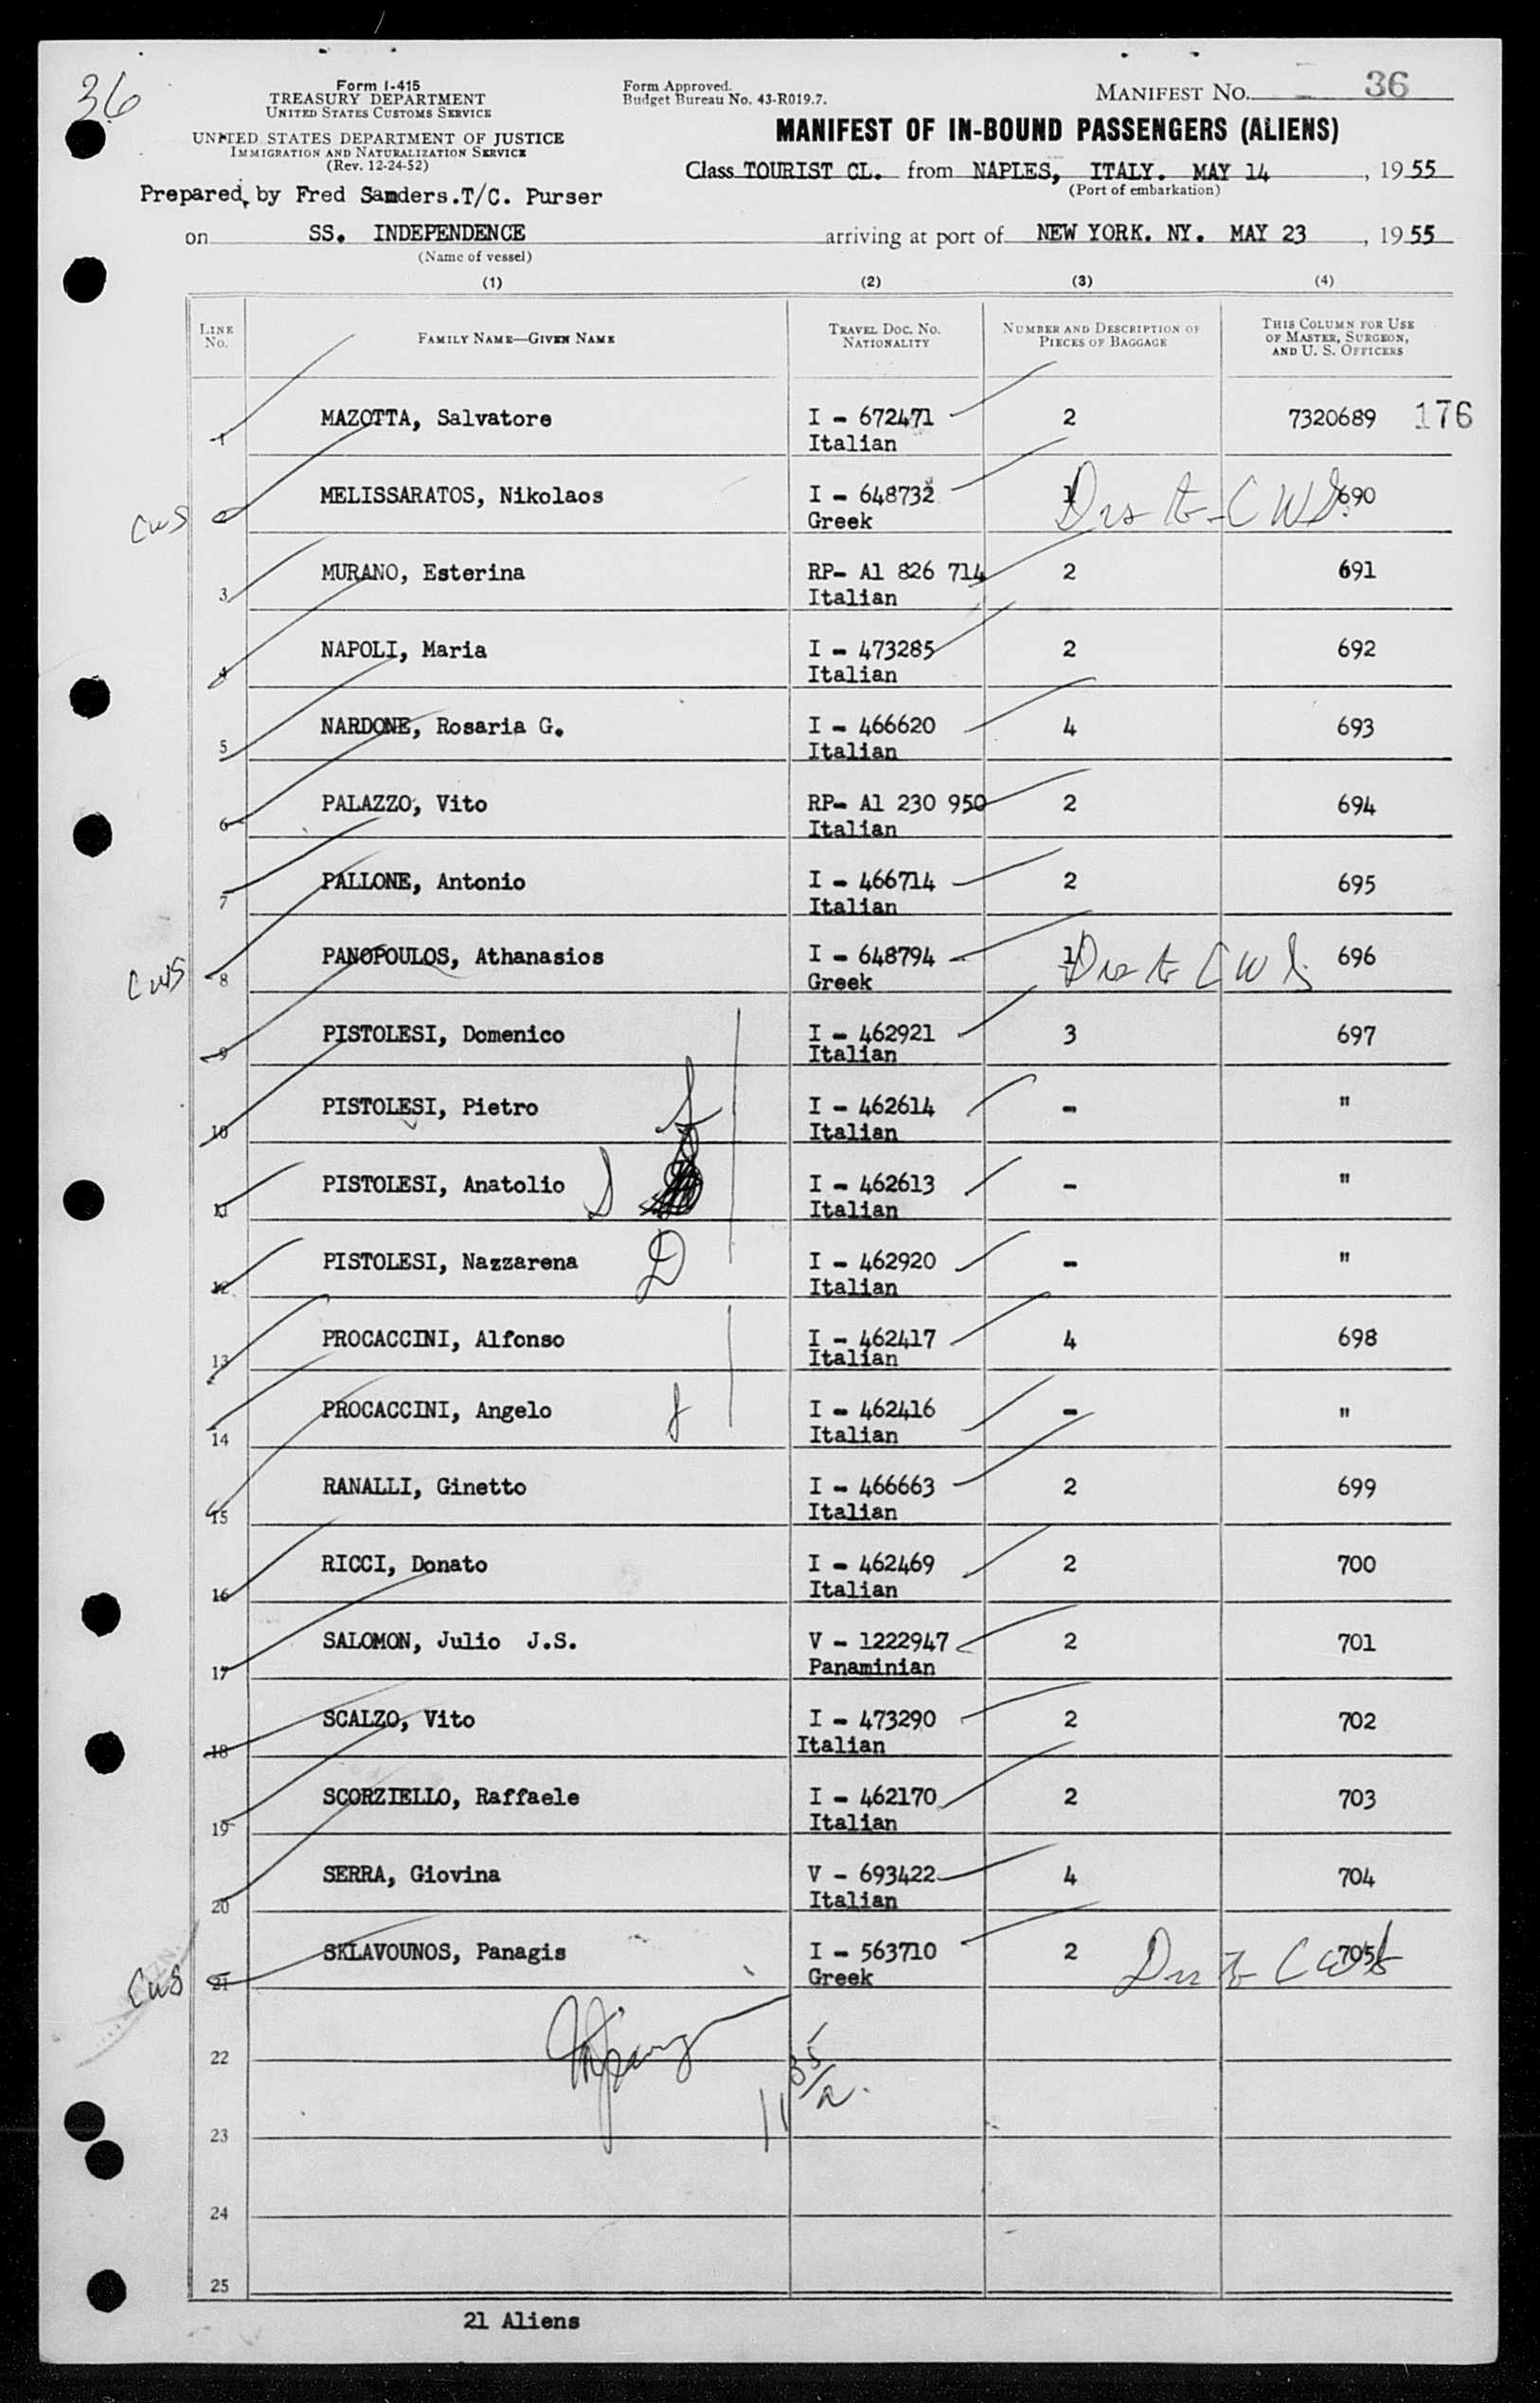 36
Form I-415
TREASURY DEPARTMENT
UNITED STATES CUSTOMS SERVICE
UNITED STATES DEPARTMENT OF JUSTICE
IMMIGRATION AND NATURALIZATION SERVICE
(Rev. 12-24-52)
Form Approved.
Budget Bureau No. 43-R019.7.
MANIFEST NO. 36
MANIFEST OF IN-BOUND PASSENGERS (ALIENS)
Class TOURIST CL. from NAPLES, ITALY. MAY 14, 1955
(Port of embarkation)
Prepared, by Fred Samders.T/C. Purser
on SS. INDEPENDENCE arriving at port of NEW YORK. NY. MAY 23, 1955
(Name of vessel)
(1) (2) (3) (4)
LINE No. FAMILY NAME—GIVEN NAME TRAVEL DOC. NO. NATIONALITY NUMBER AND DESCRIPTION OF PIECES OF BAGGAGE THIS COLUMN FOR USE OF MASTER, SURGEON, AND U. S. OFFICERS
1 MAZOTTA, Salvatore I - 672471 2 7320689 176
Italian
CWS 2 MELISSARATOS, Nikolaos I - 648732 1 690
Greek
3 MURANO, Esterina RP- A1 826 714 2 691
Italian
4 NAPOLI, Maria I - 473285 2 692
Italian
5 NARDONE, Rosaria G. I - 466620 4 693
Italian
6 PALAZZO, Vito RP- A1 230 950 2 694
Italian
7 PALLONE, Antonio I - 466714 2 695
Italian
CWS 8 PANOPOULOS, Athanasios I - 648794 1 696
Greek
9 PISTOLESI, Domenico I - 462921 3 697
Italian
10 PISTOLESI, Pietro I - 462614 - "
Italian
11 PISTOLESI, Anatolio I - 462613 - "
Italian
12 PISTOLESI, Nazzarena D I - 462920 - "
Italian
13 PROCACCINI, Alfonso I - 462417 4 698
Italian
14 PROCACCINI, Angelo I - 462416 - "
Italian
15 RANALLI, Ginetto I - 466663 2 699
Italian
16 RICCI, Donato I - 462469 2 700
Italian
17 SALOMON, Julio J.S. V - 1222947 2 701
Panaminian
18 SCALZO, Vito I - 473290 2 702
Italian
19 SCORZIELLO, Raffaele I - 462170 2 703
Italian
20 SERRA, Giovina V - 693422 4 704
Italian
CWS 21 SKLAVOUNOS, Panagis I - 563710 2 705
Greek
22
23
24
25
21 Aliens